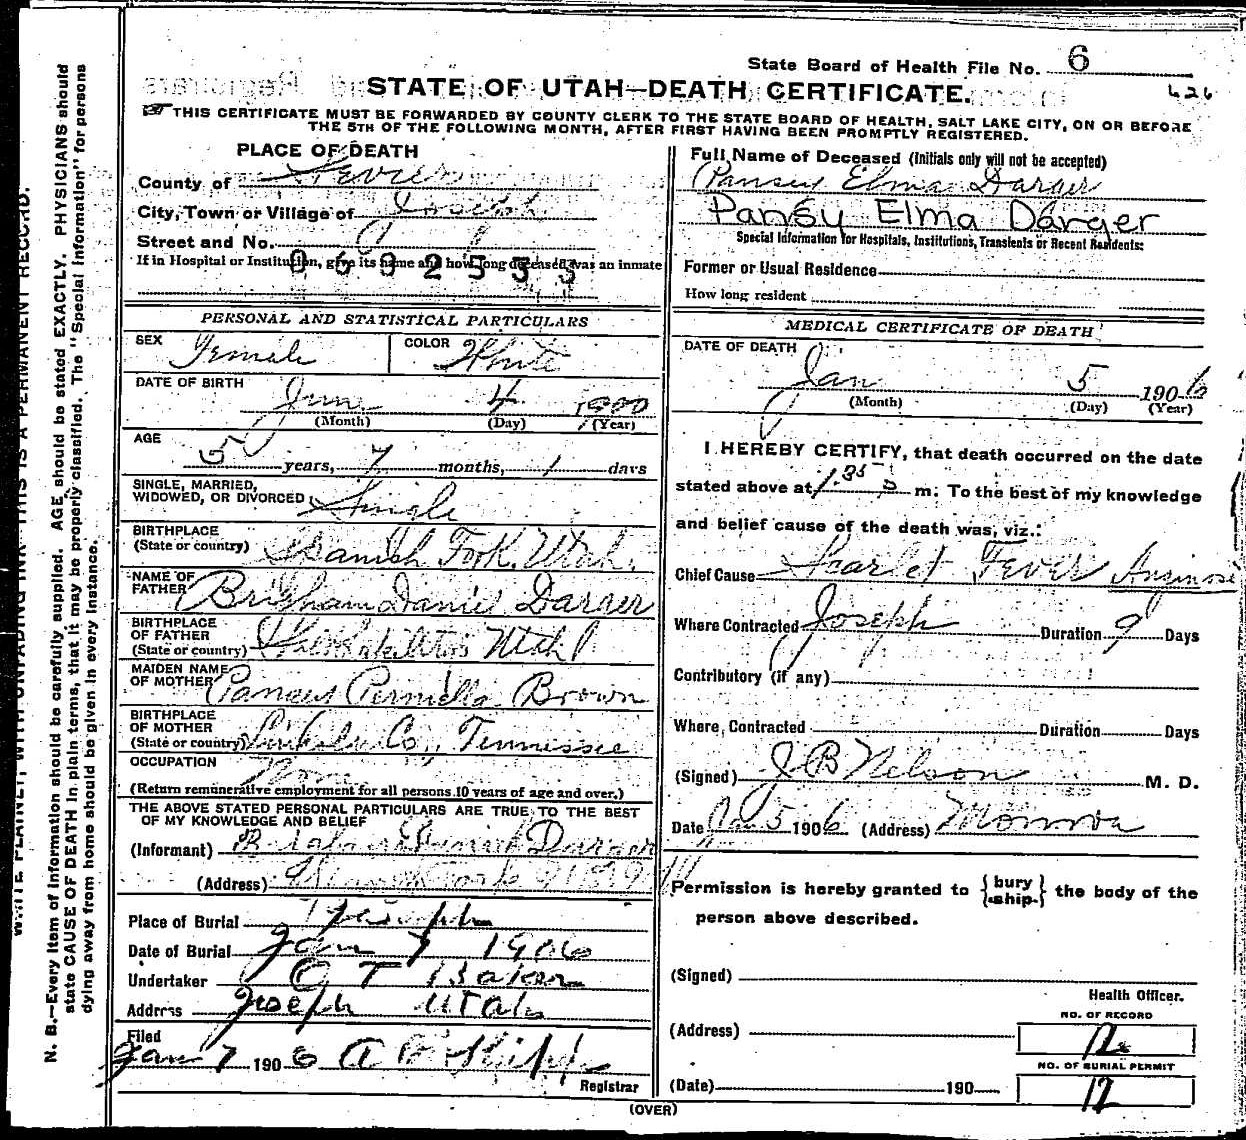 State Board of Health File No. 6
STATE OF UTAH—DEATH CERTIFICATE.
626
THIS CERTIFICATE MUST BE FORWARDED BY COUNTY CLERK TO THE STATE BOARD OF HEALTH, SALT LAKE CITY, ON OR BEFORE
THE 5TH OF THE FOLLOWING MONTH, AFTER FIRST HAVING BEEN PROMPTLY REGISTERED.
PLACE OF DEATH
County of Sevier
City, Town or Village of Joseph
Street and No.
If in Hospital or Institution, give its name and how long deceased was an inmate
PERSONAL AND STATISTICAL PARTICULARS
SEX Female COLOR White
DATE OF BIRTH June 4 1900
(Month) (Day) (Year)
AGE
5 years, 7 months, 1 days
SINGLE, MARRIED,
WIDOWED, OR DIVORCED Single
BIRTHPLACE
(State or country) Spanish Fork, Utah.
NAME OF
FATHER Brigham Daniel Darger
BIRTHPLACE
OF FATHER
(State or country) Utah
MAIDEN NAME
OF MOTHER Brown
BIRTHPLACE
OF MOTHER
(State or country) Lincoln Co., Tennessee
OCCUPATION None
(Return remunerative employment for all persons 10 years of age and over.)
THE ABOVE STATED PERSONAL PARTICULARS ARE TRUE TO THE BEST
OF MY KNOWLEDGE AND BELIEF
(Informant) Brigham Daniel Darger
(Address) Fork
Place of Burial Joseph
Date of Burial Jan 7 1906
Undertaker O T Baker
Address Joseph Utah
Filed
Jan 7 1906
Registrar
Full Name of Deceased (Initials only will not be accepted)
Pansy Elma Darger
Pansy Elma Darger
Special Information for Hospitals, Institutions, Transients or Recent Residents:
Former or Usual Residence
How long resident
MEDICAL CERTIFICATE OF DEATH
DATE OF DEATH
Jan 5 1906
(Month) (Day) (Year)
I HEREBY CERTIFY, that death occurred on the date
stated above at 1.35 p m: To the best of my knowledge
and belief cause of the death was, viz.:
Chief Cause Scarlet Fever
Where Contracted Joseph Duration 9 Days
Contributory (if any)
Where Contracted Duration Days
(Signed) J B Nelson M. D.
Date Jan 5 1906 (Address) Monroe
Permission is hereby granted to {bury ship} the body of the
person above described.
(Signed)
Health Officer.
(Address)
NO. OF RECORD
12
NO. OF BURIAL PERMIT
(Date) 190 12
(OVER)
N. B.—Every item of information should be carefully supplied. AGE should be stated EXACTLY. PHYSICIANS should
state CAUSE OF DEATH in plain terms, that it may be properly classified. The "Special Information" for persons
dying away from home should be given in every instance.